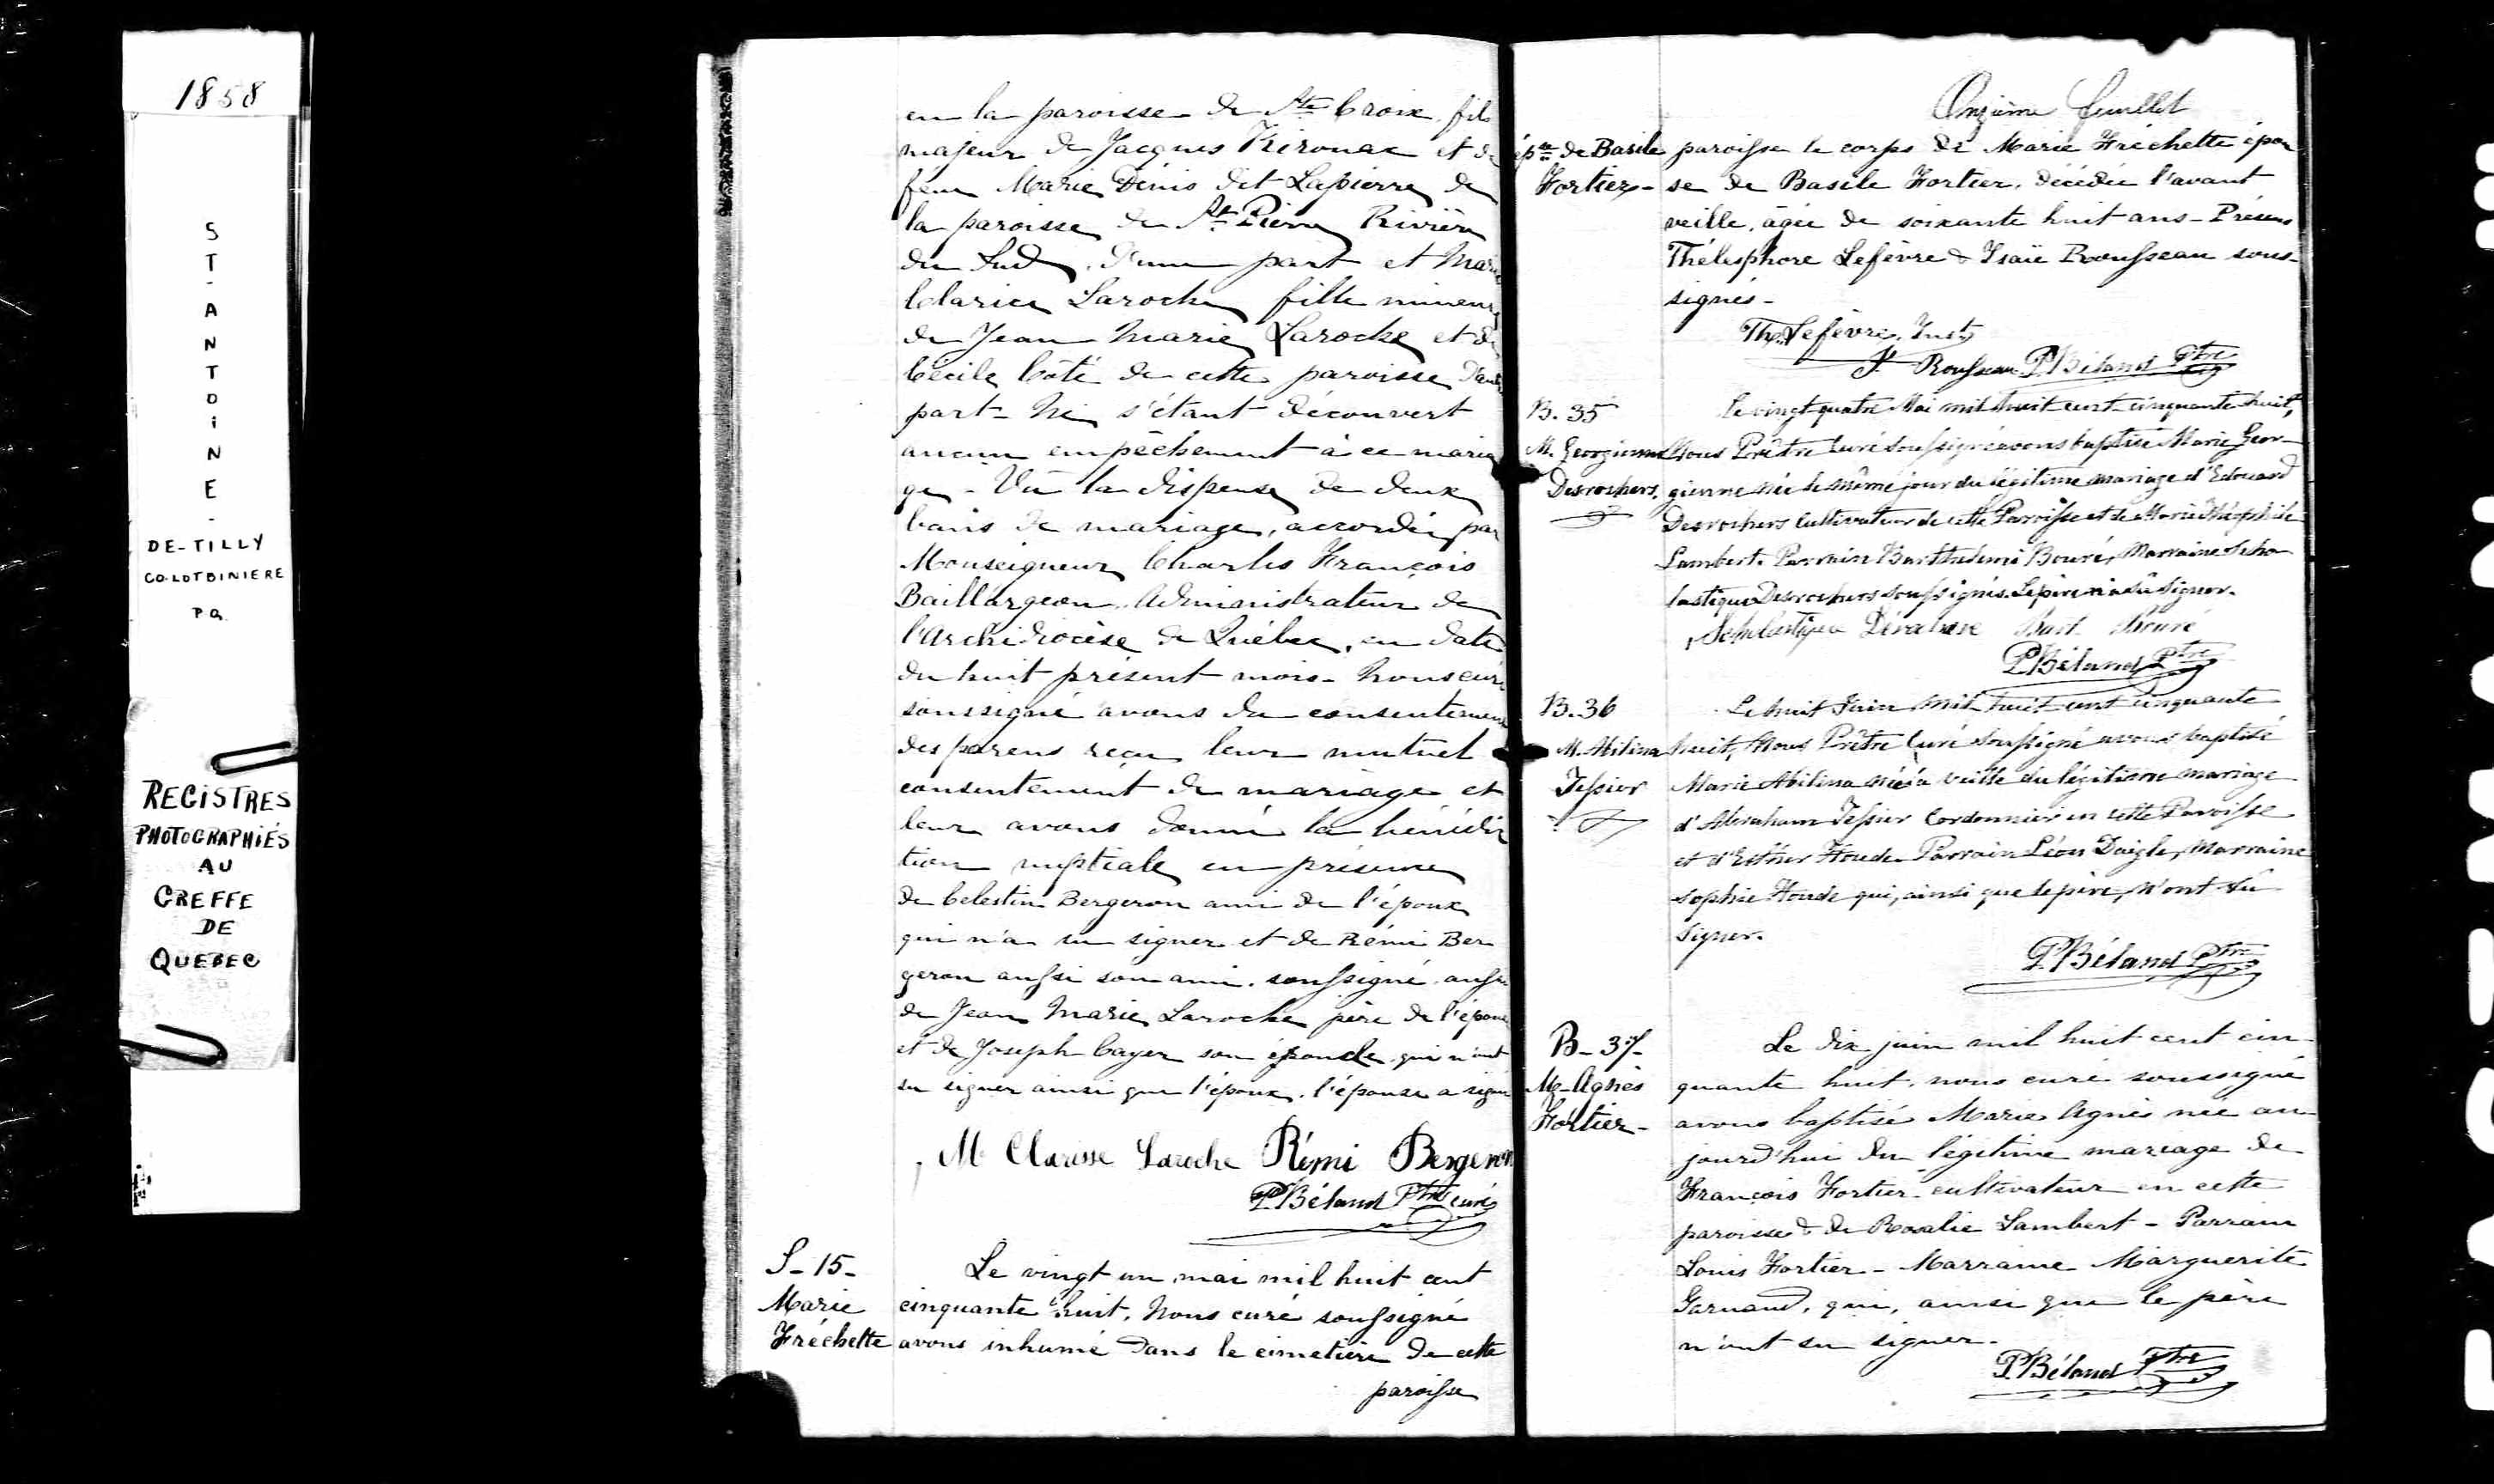 1858
ST-ANTOINE-
DE-TILLY
CO. LOTBINIERE
P Q
REGISTRES
PHOTOGRAPHIÉS
AU
GREFFE
DE
QUEBEC
en la paroisse de Ste Croix, fils
majeur de Jacques Kirouac et de
feue Marie Denis dit Lapierre de
la paroisse de St Pierre Rivière
du Sud, d'une part et Marie
Clarice Laroche fille mineure
de Jean Marie Laroche et de
Cécile Côté de cette paroisse d'autre
part - Ne s'étant découvert
aucun empêchement à ce maria
ge - Vu la dispense de deux
bans de mariage, accordée par
Monseigneur Charles François
Baillargeon, Administrateur de
l'Archidiocèse de Québec, en date
du huit présent mois - Nous curé
soussigné avons du consentement
des parens reçu leur mutuel
consentement de mariage et
leur avons donné la bénédic
tion nuptiale en présence
de Celestin Bergeron ami de l'époux
qui n'a su signer et de Rémi Ber
geron aussi son ami, soussigné, aussi
de Jean Marie Laroche père de l'épouse
et de Joseph Cayer son qui n'ont
su signer ainsi que l'époux, l'épouse a signé
M Clarisse Laroche Rémi Bergeron
P. Béland Ptre curé
S-15- Le vingt un mai mil huit cent
Marie cinquante huit, Nous curé soussigné
Fréchette avons inhumé dans le cimetière de cette
paroisse
Onzième feuillet
épse de Basile paroisse le corps de Marie Fréchette épou
Fortier- se de Basile Fortier, décédée l'avant
veille, agée de soixante huit ans - Présens
Thélesphore Lefèvre & Isaïe Rousseau sous-
signés-
The. Lefèvre, Inst.
I. Rousseau P. Béland Ptre
B. 35 Le vingt quatre Mai mil huit cent cinquante huit,
M. Georgienne Nous Prêtre Curé soussigné avons baptisé Marie Geor-
Desrochers. gienne née le même jour du légitime mariage d'Edouard
Desrochers Cultivateur de cette Paroisse et de Marie Théophile
Lambert. Parrain Barthelemi Bouré, Marraine Scho
lastique Desrochers soussignés. Le père n'a sû signer.
Bart Bouré
P. Béland Ptre
B. 36 Le huit Juin mil huit cent cinquante
M. Abilina huit, Nous Prêtre Curé Soussigné avons baptisé
Tessier Marie Abilina née la veille du légitime mariage
d'Abraham Tessier Cordonnier en cette Paroisse
et d'Esther Houde. Parrain Léon Daigle, Marraine
Sophie Houde qui, ainsi que le père, n'ont sû
Signer.
P. Béland Ptre
B-37- Le dix juin mil huit cent cin-
M-Agnès quante huit, nous curé soussigné
Fortier- avons baptisé Marie Agnès née au-
jourd'hui du légitime mariage de
François Fortier cultivateur en cette
paroisse & de Rosalie Lambert - Parrain
Louis Fortier - Marraine Marguerite
qui, ainsi que le père
n'ont su signer.
P. Béland Ptre